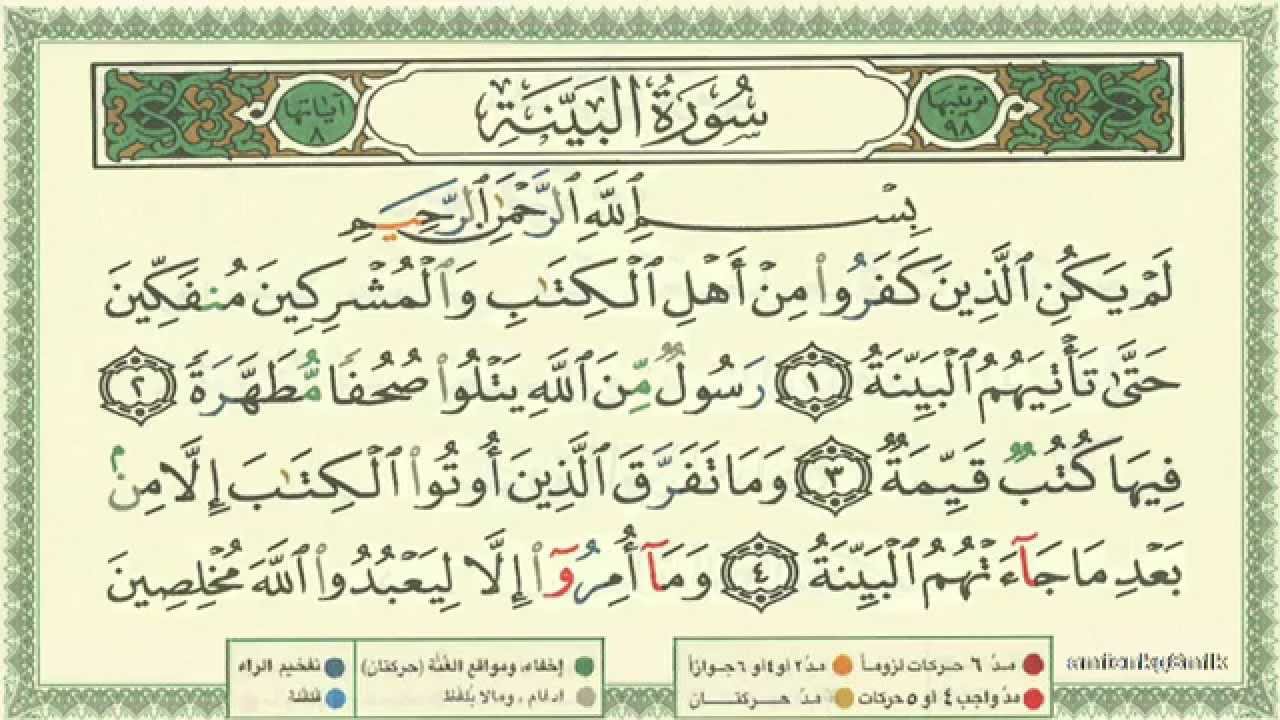 ترتيبها ٩٨ سُورَةُ البَيِّنَةِ آياتها ٨
بِسْمِ ٱللَّهِ ٱلرَّحْمَٰنِ ٱلرَّحِيمِ
لَمْ يَكُنِ ٱلَّذِينَ كَفَرُوا۟ مِنْ أَهْلِ ٱلْكِتَٰبِ وَٱلْمُشْرِكِينَ مُنفَكِّينَ
حَتَّىٰ تَأْتِيَهُمُ ٱلْبَيِّنَةُ ١ رَسُولٌ مِّنَ ٱللَّهِ يَتْلُوا۟ صُحُفًا مُّطَهَّرَةً ٢
فِيهَا كُتُبٌ قَيِّمَةٌ ٣ وَمَا تَفَرَّقَ ٱلَّذِينَ أُوتُوا۟ ٱلْكِتَٰبَ إِلَّا مِنۢ
بَعْدِ مَا جَآءَتْهُمُ ٱلْبَيِّنَةُ ٤ وَمَآ أُمِرُوٓا۟ إِلَّا لِيَعْبُدُوا۟ ٱللَّهَ مُخْلِصِينَ
مدّ ٦ حركات لزوماً مدّ ٢ أو ٤ أو ٦ جوازاً إخفاء، ومواقع الغُنَّة (حركتان) تفخيم الراء
مدّ واجب ٤ أو ٥ حركات مدّ حركتان ادغام، ومالا يُلفَظ قلقلة